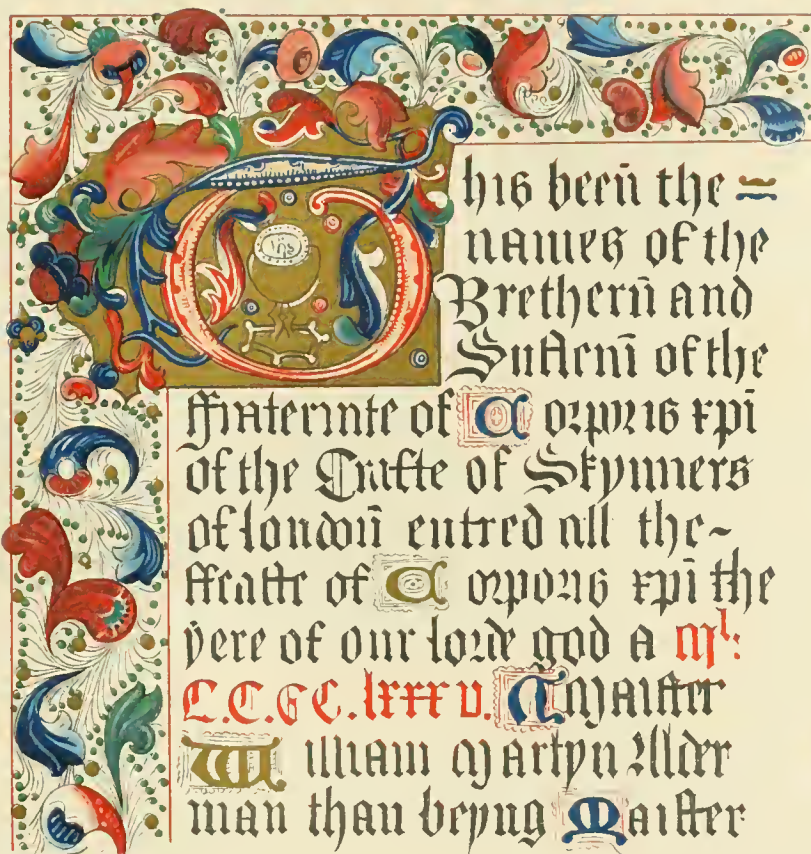 This beeñ the =
names of the
Brethern̄ and
Sustern̄ of the
ffraternite of Corporis xp̄i
of the Crafte of Skynners
of londoun̄ entred att the-
ffeaste of Corporis xp̄i the
yere of our lorde god a Ml:
C.C.C.C. lxxx v. Maister
William Martyn Alder
man than beyng Maister